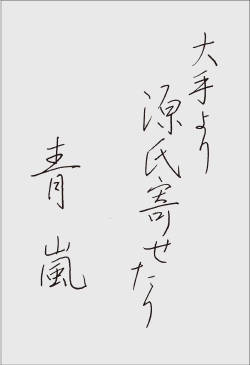 大手より
源氏寄せたり
青嵐